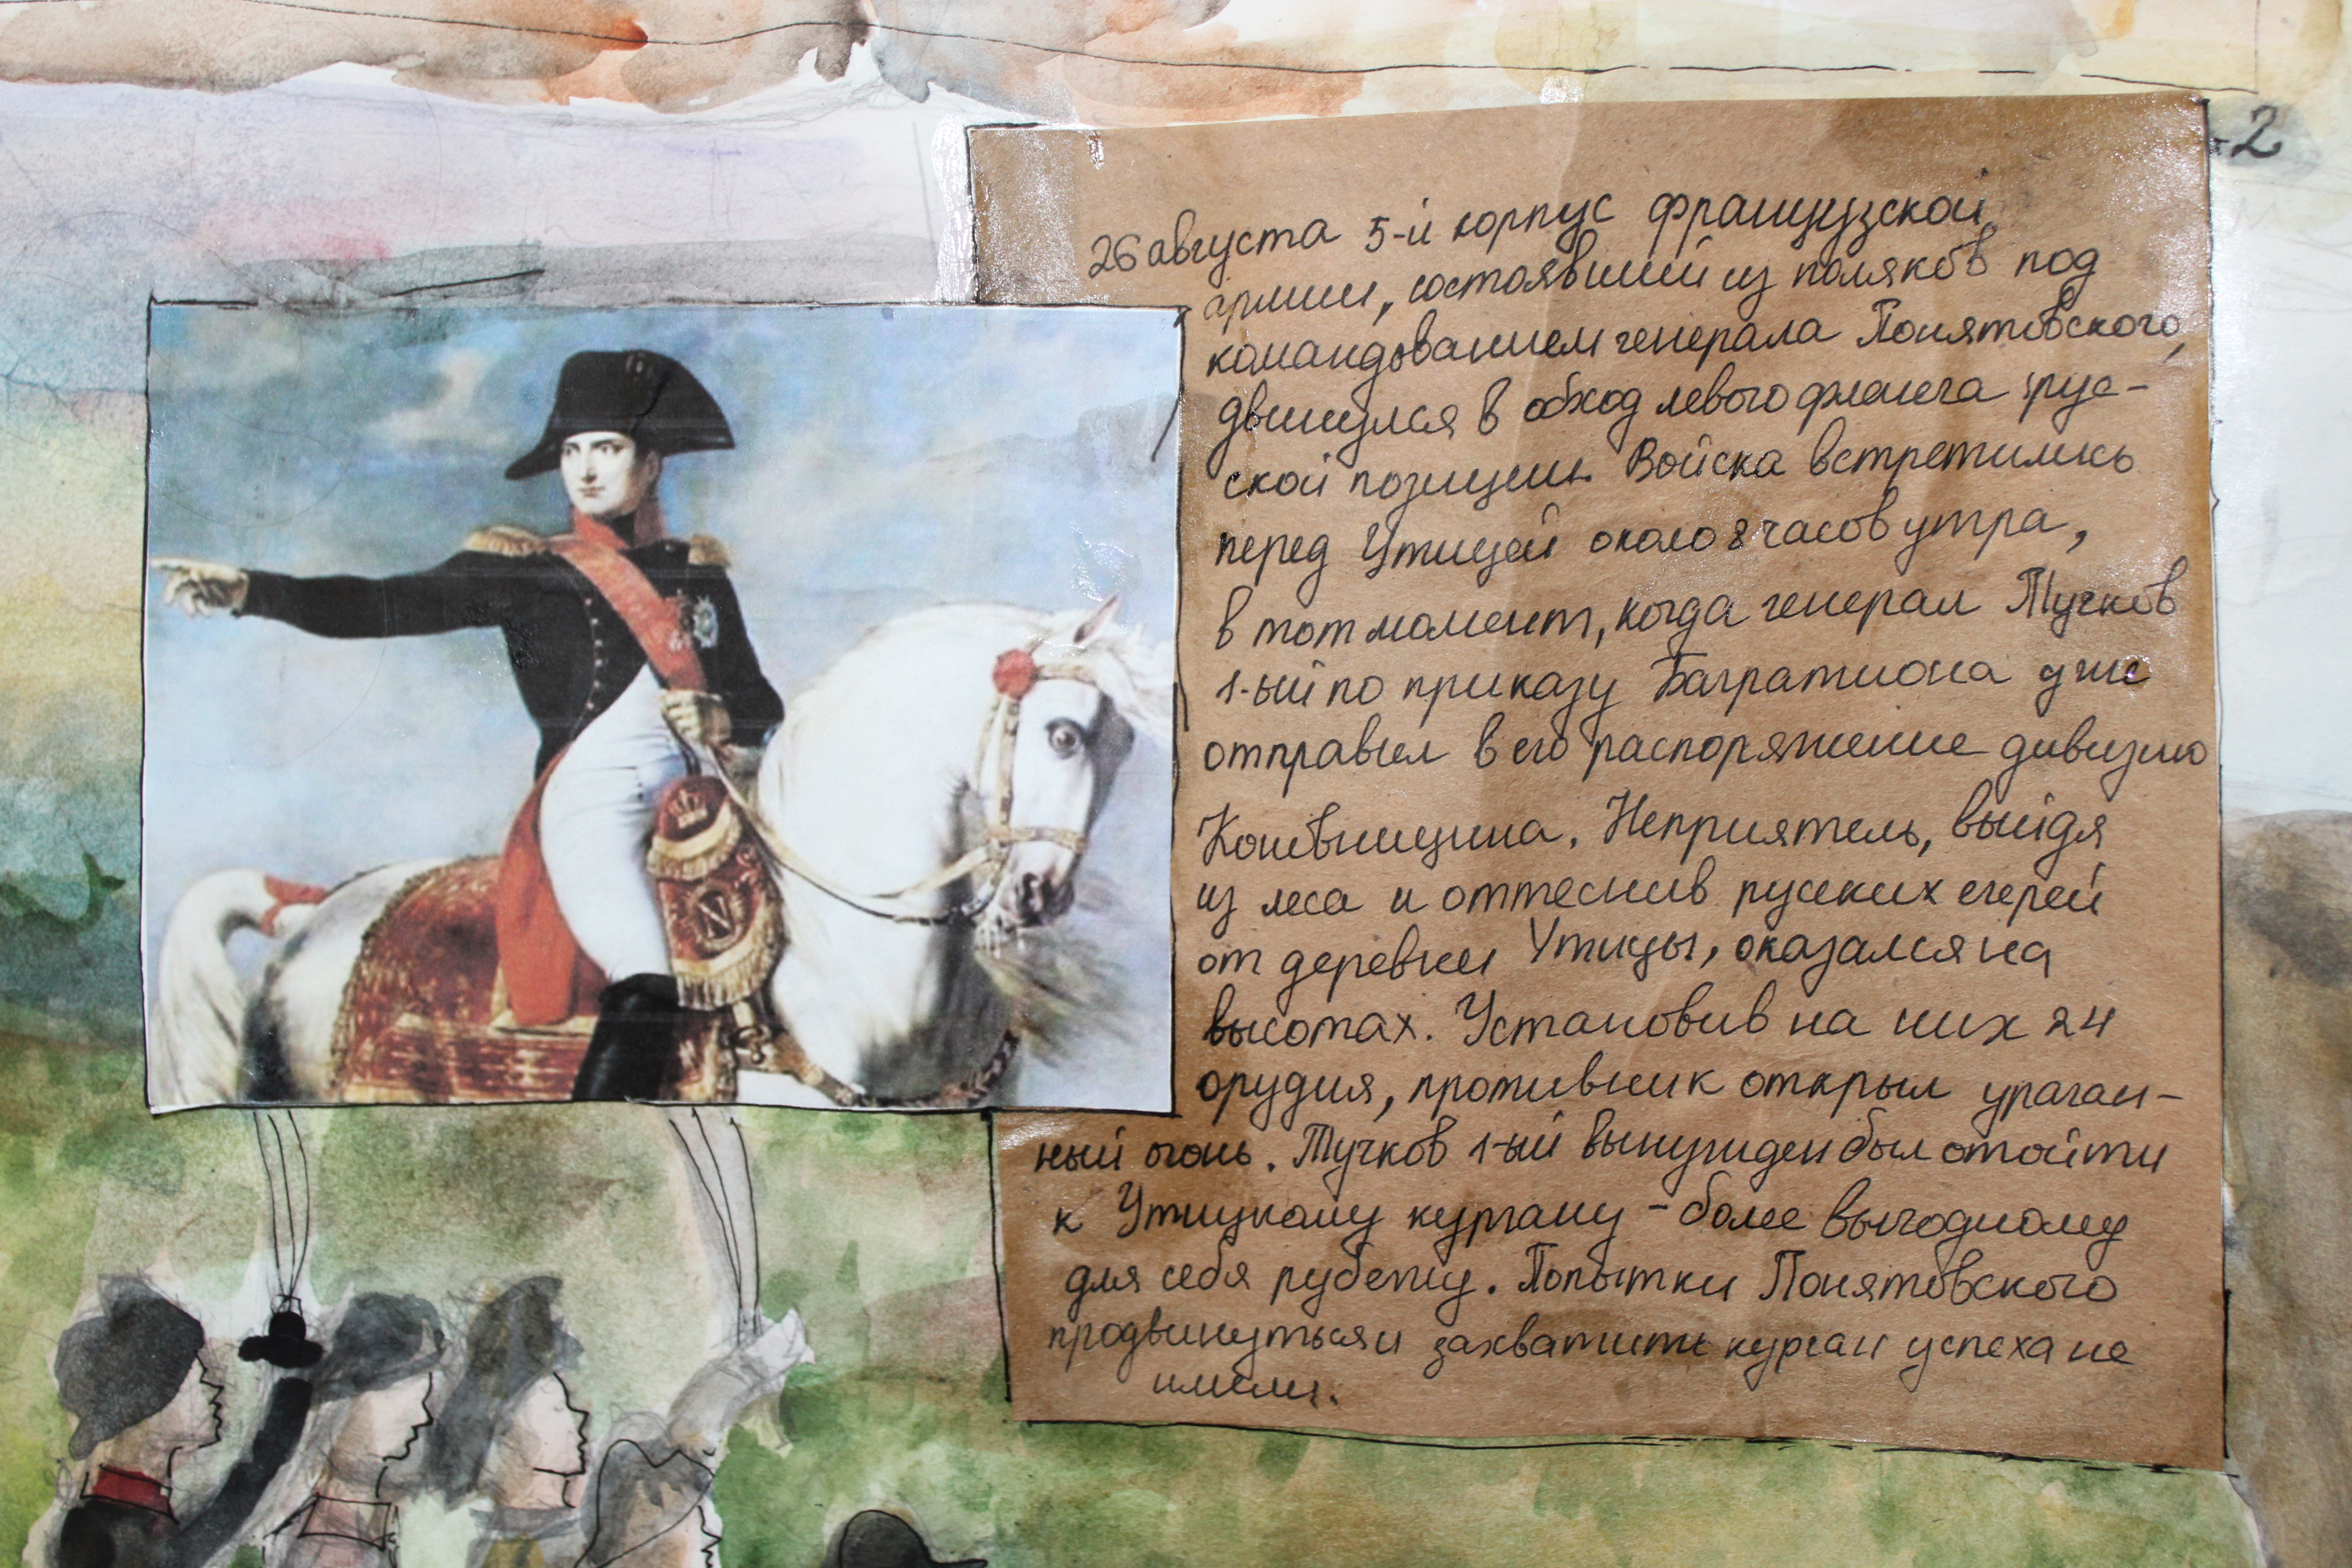 -2
26 августа 5-й корпус французской
армии, состоявший из поляков под
командованием генерала Понятовского,
двинулся в обход левого фланга рус-
ской позиции. Войска встретились
перед Утицей около 8 часов утра,
в тот момент, когда генерал Тучков
1-ый по приказу Багратиона уже
отправил в его распоряжение дивизию
Коновницина. Неприятель, выйдя
из леса и оттеснив русских егерей
от деревни Утицы, оказался на
высотах. Установив на них 24
орудия, противник открыл ураган-
ный огонь. Тучков 1-ый вынужден был отойти
к Утицкому кургану - более выгодному
для себя рубежу. Попытки Понятовского
продвинуться и захватить курган успеха не
имели.
N